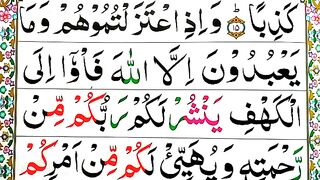 كَذِبًا ؕ ﴿۱۵﴾ وَاِذِ اعْتَزَلْتُمُوْهُمْ وَمَا
يَعْبُدُوْنَ اِلَّا اللّٰهَ فَاْوٗۤا اِلَى
الْكَهْفِ يَنْشُرْ لَكُمْ رَبُّكُمْ مِّنْ
رَّحْمَتِهٖ وَيُهَيِّئْ لَكُمْ مِّنْ اَمْرِكُمْ